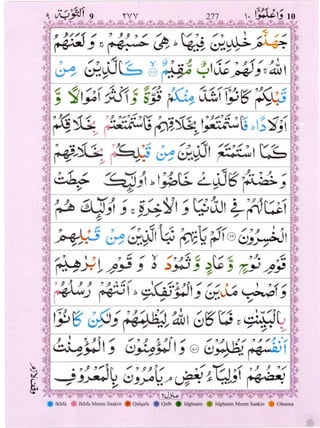 ٩ اَلتَّوْبَة 9 ٢٧٧ 277 وَاعْلَمُوْٓا ١٠ 10
جَهَنَّمَ خٰلِدِيْنَ فِيْهَا ؕ هِيَ حَسْبُهُمْ ۚ وَ لَعَنَهُمُ
اللّٰهُ ۚ وَلَهُمْ عَذَابٌ مُّقِيْمٌ ۙ‏ كَالَّذِيْنَ مِنْ
قَبْلِكُمْ كَانُوْٓا اَشَدَّ مِنْكُمْ قُوَّةً وَّ اَكْثَرَ اَمْوَالًا وَّ
اَوْلَادًا ؕ فَاسْتَمْتَعُوْا بِخَلَاقِهِمْ فَاسْتَمْتَعْتُمْ بِخَلَاقِكُمْ
كَمَا اسْتَمْتَعَ الَّذِيْنَ مِنْ قَبْلِكُمْ بِخَلَاقِهِمْ
وَ خُضْتُمْ كَالَّذِيْ خَاضُوْا ؕ اُولٰٓئِكَ حَبِطَتْ
اَعْمَالُهُمْ فِي الدُّنْيَا وَ الْاٰخِرَةِ ۚ وَ اُولٰٓئِكَ هُمُ
الْخٰسِرُوْنَ اَلَمْ يَاْتِهِمْ نَبَاُ الَّذِيْنَ مِنْ قَبْلِهِمْ
قَوْمِ نُوْحٍ وَّ عَادٍ وَّ ثَمُوْدَ ۙ۬ وَ قَوْمِ اِبْرٰهِيْمَ
وَ اَصْحٰبِ مَدْيَنَ وَ الْمُؤْتَفِكٰتِ ؕ اَتَتْهُمْ رُسُلُهُمْ
بِالْبَيِّنٰتِ ۚ فَمَا كَانَ اللّٰهُ لِيَظْلِمَهُمْ وَ لٰكِنْ كَانُوْٓا
اَنْفُسَهُمْ يَظْلِمُوْنَ وَ الْمُؤْمِنُوْنَ وَ الْمُؤْمِنٰتُ
بَعْضُهُمْ اَوْلِيَآءُ بَعْضٍ ۘ يَاْمُرُوْنَ بِالْمَعْرُوْفِ
وقف لازم
منزل ٢
Ikhfa Ikhfa Meem Saakin Qalqala Qalb Idghaam Idghaam Meem Saakin Ghunna